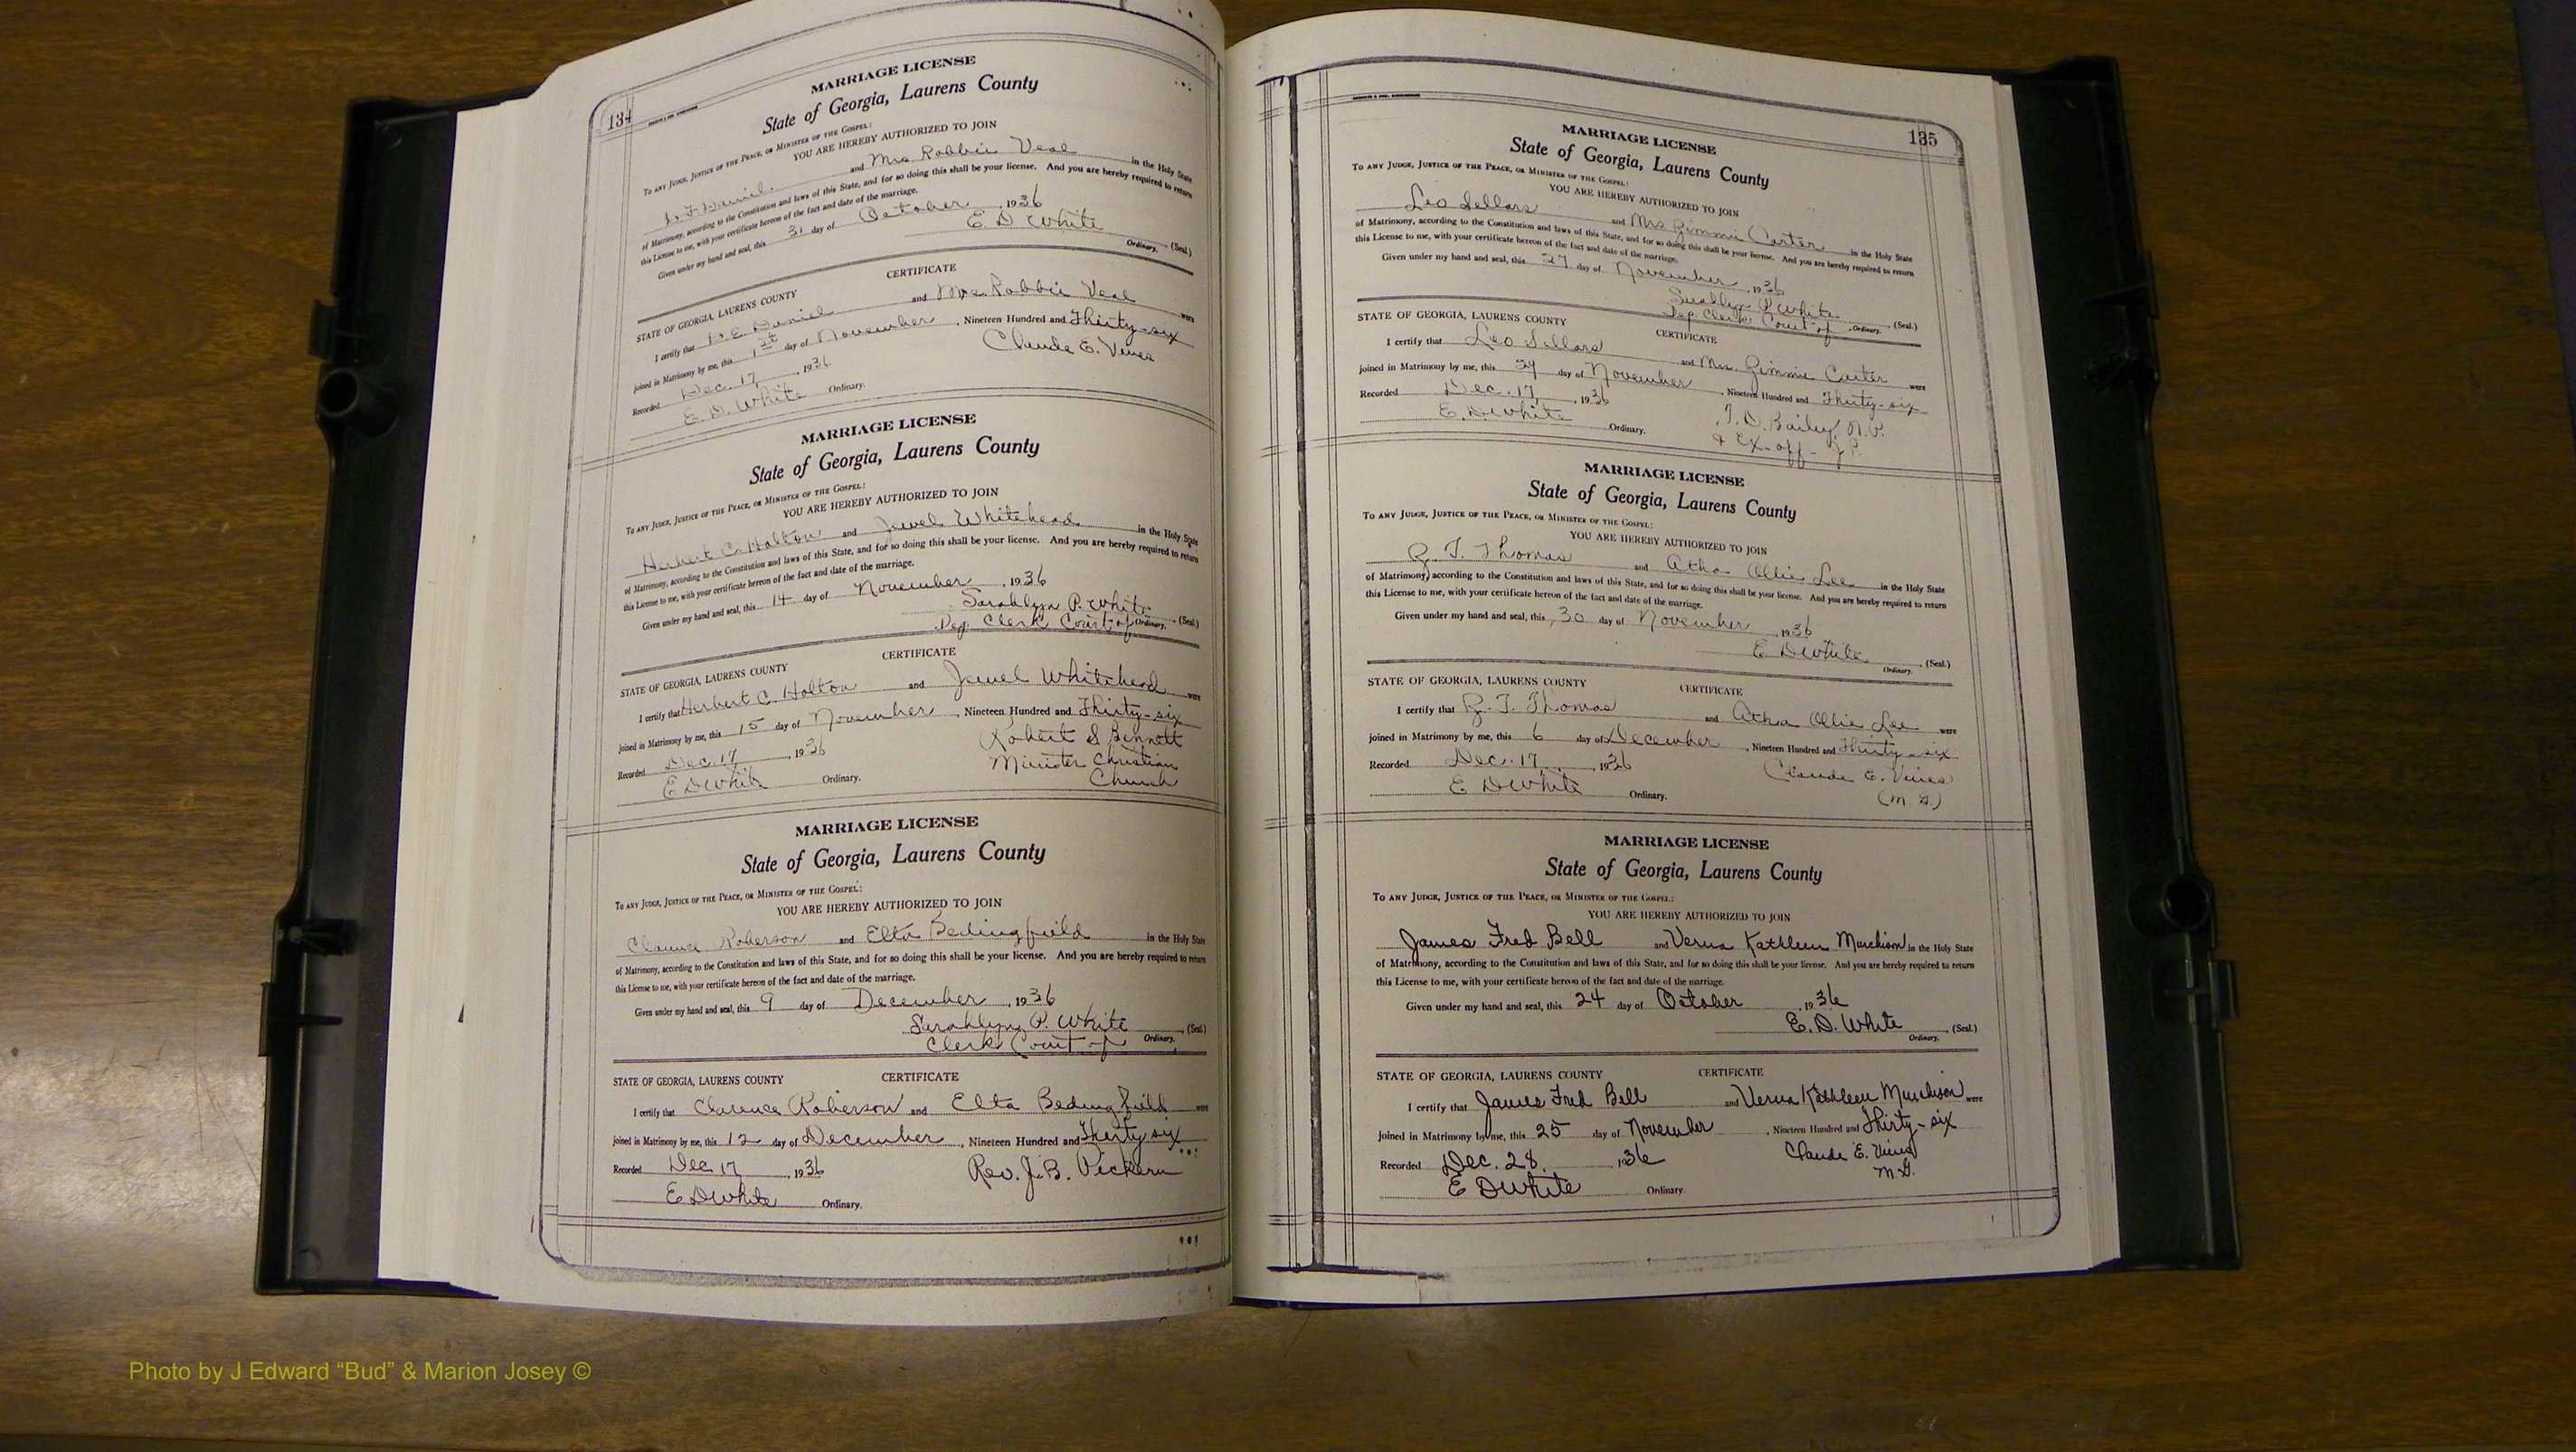 134
MARRIAGE LICENSE
State of Georgia, Laurens County
To any Judge, Justice of the Peace, or Minister of the Gospel:
YOU ARE HEREBY AUTHORIZED TO JOIN
Daniel and Mrs Robbie Veal in the Holy State
of Matrimony, according to the Constitution and laws of this State, and for so doing this shall be your license. And you are hereby required to return
this License to me, with your certificate hereon of the fact and date of the marriage.
Given under my hand and seal, this 31 day of October, 1936
E. D. White (Seal.)
Ordinary.
CERTIFICATE
STATE OF GEORGIA, LAURENS COUNTY
I certify that Daniel and Mrs Robbie Veal were
joined in Matrimony by me, this 1st day of November, Nineteen Hundred and Thirty-six
Recorded Dec. 17, 1936 Claude E. Vines
E. D. White Ordinary.
MARRIAGE LICENSE
State of Georgia, Laurens County
To any Judge, Justice of the Peace, or Minister of the Gospel:
YOU ARE HEREBY AUTHORIZED TO JOIN
Herbert C. Holton and Jewel Whitehead in the Holy State
of Matrimony, according to the Constitution and laws of this State, and for so doing this shall be your license. And you are hereby required to return
this License to me, with your certificate hereon of the fact and date of the marriage.
Given under my hand and seal, this 14 day of November, 1936
Sarahlyn P. White (Seal.)
Dep. Clerk Court of Ordinary.
CERTIFICATE
STATE OF GEORGIA, LAURENS COUNTY
I certify that Herbert C. Holton and Jewel Whitehead were
joined in Matrimony by me, this 15 day of November, Nineteen Hundred and Thirty-six
Recorded Dec. 17, 1936 Robert S Bennett
Minister Christian
E D White Ordinary. Church
MARRIAGE LICENSE
State of Georgia, Laurens County
To any Judge, Justice of the Peace, or Minister of the Gospel:
YOU ARE HEREBY AUTHORIZED TO JOIN
Clarence Roberson and Elta Bedingfield in the Holy State
of Matrimony, according to the Constitution and laws of this State, and for so doing this shall be your license. And you are hereby required to return
this License to me, with your certificate hereon of the fact and date of the marriage.
Given under my hand and seal, this 9 day of December, 1936
Sarahlyn P. White (Seal.)
Clerk Court of Ordinary.
STATE OF GEORGIA, LAURENS COUNTY CERTIFICATE
I certify that Clarence Roberson and Elta Bedingfield were
joined in Matrimony by me, this 12 day of December, Nineteen Hundred and Thirty six
Recorded Dec 17, 1936 Rev. J. B.
E D White Ordinary.
135
MARRIAGE LICENSE
State of Georgia, Laurens County
To any Judge, Justice of the Peace, or Minister of the Gospel:
YOU ARE HEREBY AUTHORIZED TO JOIN
Leo Sellars and Mrs Jimmie Carter in the Holy State
of Matrimony, according to the Constitution and laws of this State, and for so doing this shall be your license. And you are hereby required to return
this License to me, with your certificate hereon of the fact and date of the marriage.
Given under my hand and seal, this 27 day of November, 1936
Sarahlyn P. White (Seal.)
Dep. Clerk Court of Ordinary.
STATE OF GEORGIA, LAURENS COUNTY CERTIFICATE
I certify that Leo Sellars and Mrs. Jimmie Carter were
joined in Matrimony by me, this 29 day of November, Nineteen Hundred and Thirty-six
Recorded Dec. 17, 1936 Bailey, N.P.
E. D White Ordinary. & Ex-off- J.P.
MARRIAGE LICENSE
State of Georgia, Laurens County
To any Judge, Justice of the Peace, or Minister of the Gospel:
YOU ARE HEREBY AUTHORIZED TO JOIN
R. T. Thomas and Atha Ollie Lee in the Holy State
of Matrimony, according to the Constitution and laws of this State, and for so doing this shall be your license. And you are hereby required to return
this License to me, with your certificate hereon of the fact and date of the marriage.
Given under my hand and seal, this 30 day of November, 1936
E D White (Seal.)
Ordinary.
STATE OF GEORGIA, LAURENS COUNTY CERTIFICATE
I certify that R. T. Thomas and Atha Ollie Lee were
joined in Matrimony by me, this 6 day of December, Nineteen Hundred and Thirty-six
Recorded Dec. 17, 1936 Claude E. Vines
E D White Ordinary. (M. G.)
MARRIAGE LICENSE
State of Georgia, Laurens County
To any Judge, Justice of the Peace, or Minister of the Gospel:
YOU ARE HEREBY AUTHORIZED TO JOIN
James Fred Bell and Verna Kathleen Murchison in the Holy State
of Matrimony, according to the Constitution and laws of this State, and for so doing this shall be your license. And you are hereby required to return
this License to me, with your certificate hereon of the fact and date of the marriage.
Given under my hand and seal, this 24 day of October, 1936
E. D. White (Seal.)
Ordinary.
STATE OF GEORGIA, LAURENS COUNTY CERTIFICATE
I certify that James Fred Bell and Verna Kathleen Murchison were
joined in Matrimony by me, this 25 day of November, Nineteen Hundred and Thirty-six
Recorded Dec. 28, 1936 Claude E. Vines
E D White Ordinary. M.G.
Photo by J Edward “Bud” & Marion Josey ©